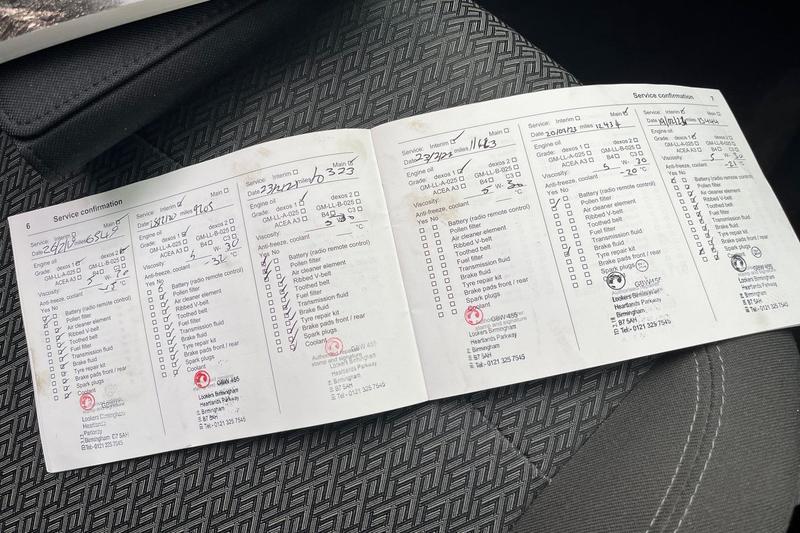 6 Service confirmation
Service: Interim Main
Date miles 6549
Engine oil
Grade: dexos 1 dexos 2
GM-LL-A-025 GM-LL-B-025
ACEA A3 B4 C3
Viscosity: 5 W-
Anti-freeze, coolant °C
Yes No
Battery (radio remote control)
Pollen filter
Air cleaner element
Ribbed V-belt
Toothed belt
Fuel filter
Transmission fluid
Brake fluid
Tyre repair kit
Brake pads front / rear
Spark plugs
Coolant
Lookers Birmingham
Heartlands
Parkway
Birmingham B7 5AH
Tel:-0121 325 7545
Service: Interim Main
Date miles 9205
Engine oil
Grade: dexos 1 dexos 2
GM-LL-A-025 GM-LL-B-025
ACEA A3 B4 C3
Viscosity: 5 W- 30
Anti-freeze, coolant °C
Yes No
Battery (radio remote control)
Pollen filter
Air cleaner element
Ribbed V-belt
Toothed belt
Fuel filter
Transmission fluid
Brake fluid
Tyre repair kit
Brake pads front / rear
Spark plugs
Coolant
GBW 455
Lookers Birmingham
Heartlands Parkway
Birmingham
B7 5AH
Tel:- 0121 325 7545
Service: Interim Main
Date miles 10323
Engine oil
Grade: dexos 1 dexos 2
GM-LL-A-025 GM-LL-B-025
ACEA A3 B4 C3
Viscosity: 5 30
Anti-freeze, coolant °C
Yes No
Battery (radio remote control)
Pollen filter
Air cleaner element
Ribbed V-belt
Toothed belt
Fuel filter
Transmission fluid
Brake fluid
Tyre repair kit
Brake pads front / rear
Spark plugs
Coolant
stamp and signature
GBW 455
Lookers Birmingham
Heartlands Parkway
Birmingham
B7 5AH
Tel:- 0121 325 7545
Service confirmation 7
Service: Interim Main
Date miles
Engine oil
Grade: dexos 1 dexos 2
GM-LL-A-025 GM-LL-B-025
ACEA A3 B4 C3
Viscosity: 5 W- 30
Anti-freeze, coolant °C
Yes No
Battery (radio remote control)
Pollen filter
Air cleaner element
Ribbed V-belt
Toothed belt
Fuel filter
Transmission fluid
Brake fluid
Tyre repair kit
Brake pads front / rear
Spark plugs
Coolant
GBW 455
stamp and signature
Lookers Birmingham
Heartlands Parkway
Birmingham
B7 5AH
Tel:- 0121 325 7545
Service: Interim Main
Date 20/01/23 miles 12434
Engine oil
Grade: dexos 1 dexos 2
GM-LL-A-025 GM-LL-B-025
ACEA A3 B4 C3
Viscosity: 5 W- 30
Anti-freeze, coolant -20 °C
Yes No
Battery (radio remote control)
Pollen filter
Air cleaner element
Ribbed V-belt
Toothed belt
Fuel filter
Transmission fluid
Brake fluid
Tyre repair kit
Brake pads front / rear
Spark plugs
GBW455
Lookers Birmingham
Heartlands Parkway
Birmingham
B7 5AH
Tel:- 0121 325 7545
Service: Interim Main
Date miles
Engine oil
Grade: dexos 1 dexos 2
GM-LL-A-025 GM-LL-B-025
ACEA A3 B4 C3
Viscosity: 5 W- 30
Anti-freeze, coolant -21 °C
Yes No
Battery (radio remote control)
Pollen filter
Air cleaner element
Ribbed V-belt
Toothed belt
Fuel filter
Transmission fluid
Brake fluid
Tyre repair kit
Brake pads front / rear
Spark plugs
Lookers Birmingham
Heartlands Parkway
Birmingham
B7 5AH
Tel:- 0121 325 7545